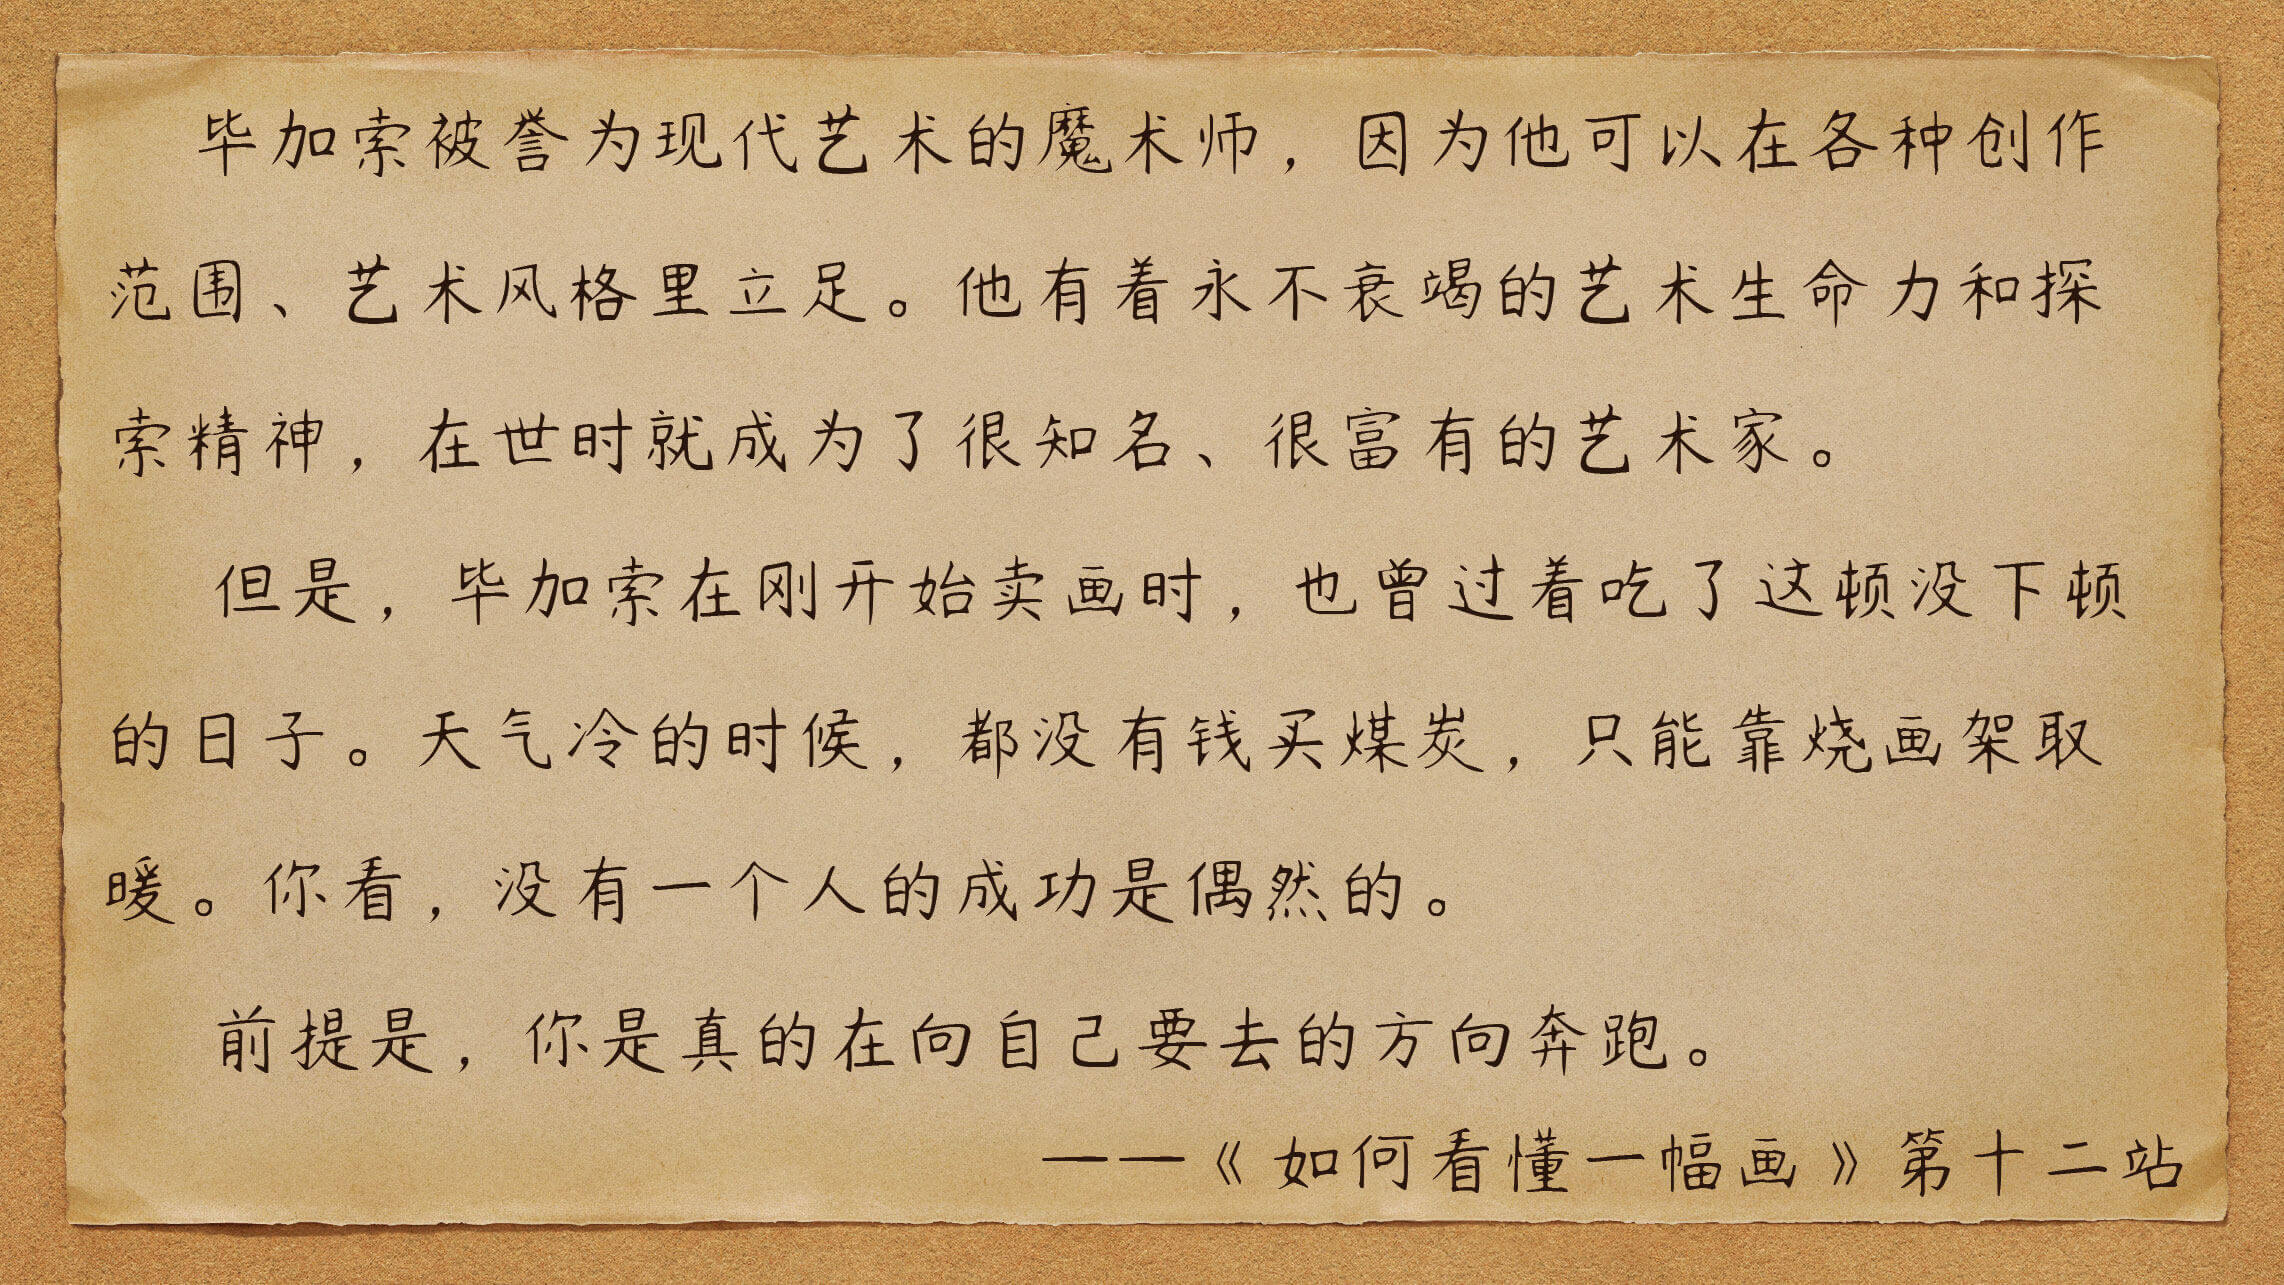 毕加索被誉为现代艺术的魔术师，因为他可以在各种创作
范围、艺术风格里立足。他有着永不衰竭的艺术生命力和探
索精神，在世时就成为了很知名、很富有的艺术家。
但是，毕加索在刚开始卖画时，也曾过着吃了这顿没下顿
的日子。天气冷的时候，都没有钱买煤炭，只能靠烧画架取
暖。你看，没有一个人的成功是偶然的。
前提是，你是真的在向自己要去的方向奔跑。
——《如何看懂一幅画》第十二站